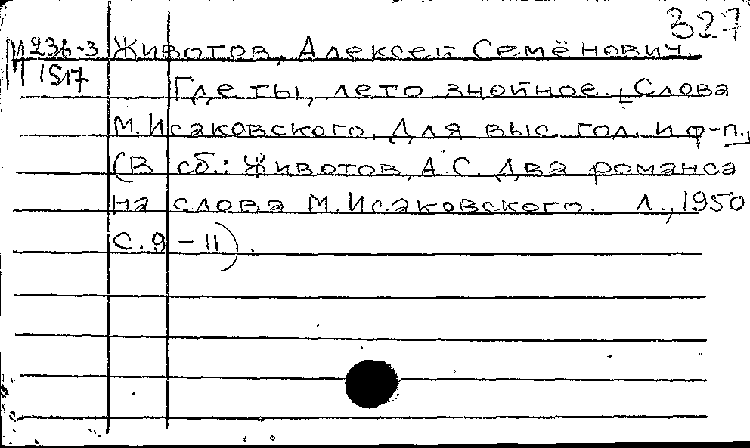 327
М 236-3 Животов, Алексей Семёнович.
1517
Где ты, лето знойное. [Слова
М. Исаковского. Для выс. гол. и ф-п.,
(В сб.: Животов, А.С. Два романса
на слова М. Исаковского. Л., 1950
С. 9 - 11).